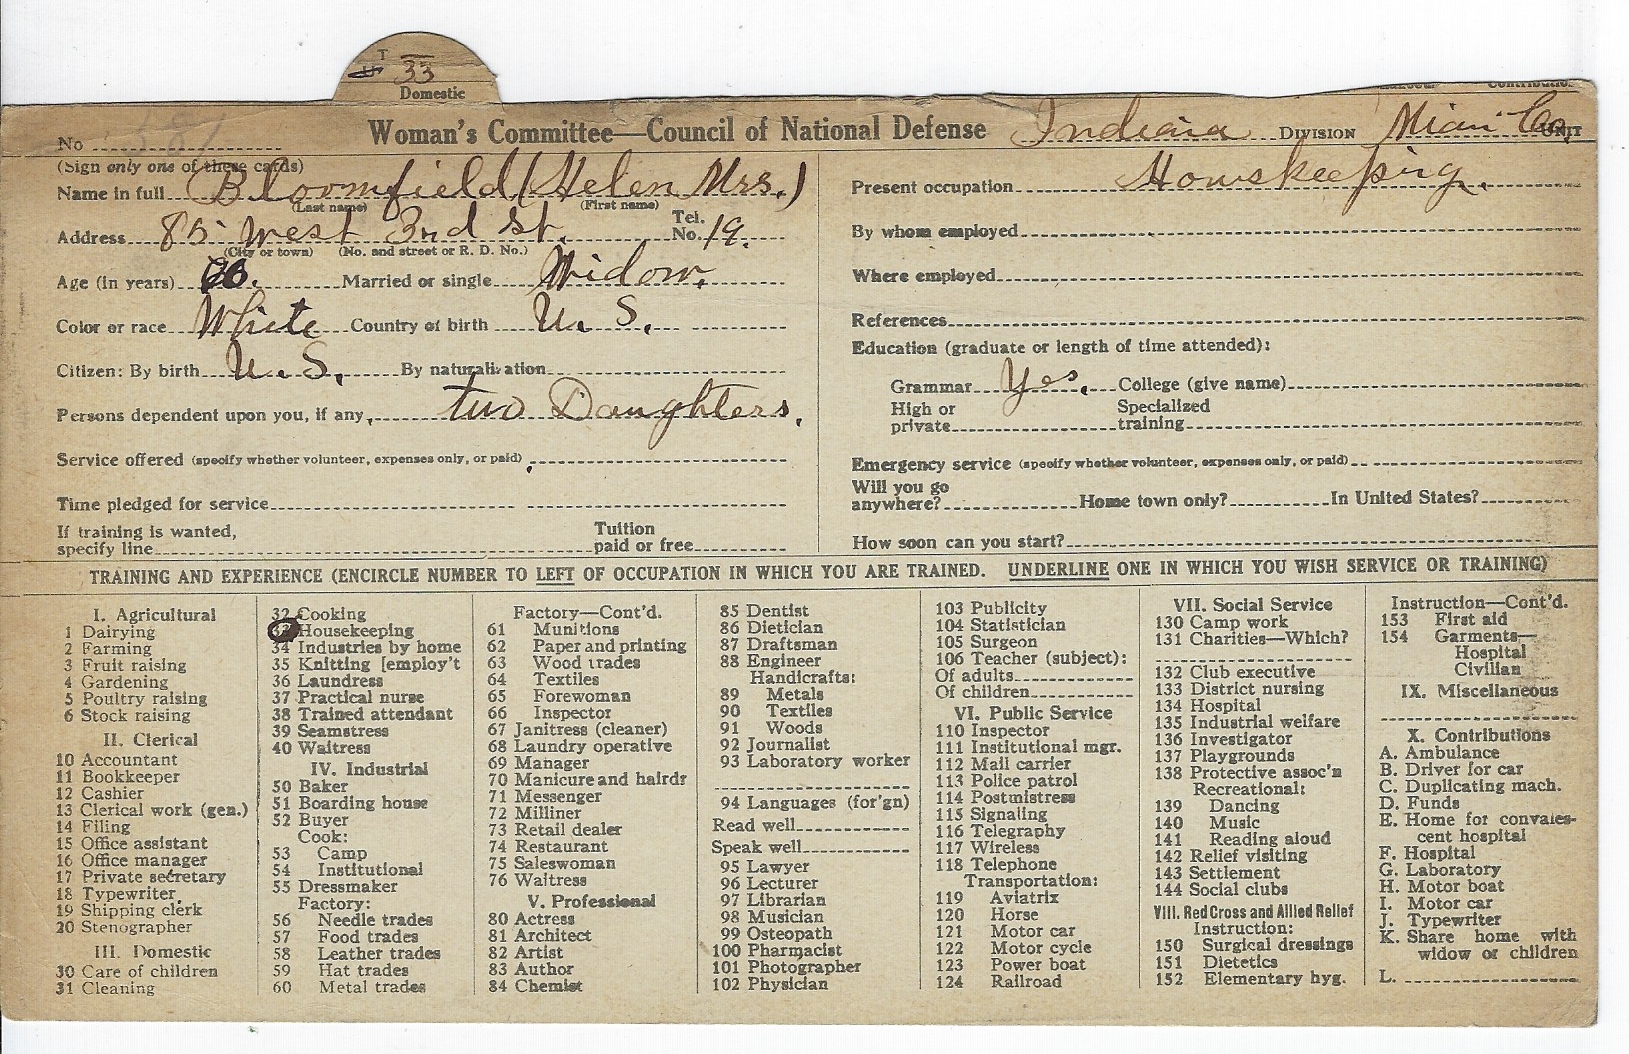 T 33
Domestic
Contributio
Woman's Committee—Council of National Defense Indiana DIVISION Miami Co. UNIT
No
(Sign only one of these cards)
Name in full Bloomfield (Helen Mrs.)
(Last name) (First name)
Address 85 West 3nd St. Tel. No. 19.
(City or town) (No. and street or R. D. No.)
Age (in years) Married or single Widow.
Color or race White Country of birth U. S.
Citizen: By birth U. S. By naturalization
Persons dependent upon you, if any, two Daughters.
Service offered (specify whether volunteer, expenses only, or paid)
Time pledged for service
If training is wanted, specify line Tuition paid or free
Present occupation Howskeepirg.
By whom employed
Where employed
References
Education (graduate or length of time attended):
Grammar Yes. College (give name)
High or private Specialized training
Emergency service (specify whether volunteer, expenses only, or paid)
Will you go anywhere? Home town only? In United States?
How soon can you start?
TRAINING AND EXPERIENCE (ENCIRCLE NUMBER TO LEFT OF OCCUPATION IN WHICH YOU ARE TRAINED. UNDERLINE ONE IN WHICH YOU WISH SERVICE OR TRAINING)
I. Agricultural
1 Dairying
2 Farming
3 Fruit raising
4 Gardening
5 Poultry raising
6 Stock raising
II. Clerical
10 Accountant
11 Bookkeeper
12 Cashier
13 Clerical work (gen.)
14 Filing
15 Office assistant
16 Office manager
17 Private secretary
18 Typewriter
19 Shipping clerk
20 Stenographer
III. Domestic
30 Care of children
31 Cleaning
32 Cooking
33 Housekeeping
34 Industries by home
35 Knitting [employ't
36 Laundress
37 Practical nurse
38 Trained attendant
39 Seamstress
40 Waitress
IV. Industrial
50 Baker
51 Boarding house
52 Buyer
Cook:
53 Camp
54 Institutional
55 Dressmaker
Factory:
56 Needle trades
57 Food trades
58 Leather trades
59 Hat trades
60 Metal trades
Factory—Cont'd.
61 Munitions
62 Paper and printing
63 Wood trades
64 Textiles
65 Forewoman
66 Inspector
67 Janitress (cleaner)
68 Laundry operative
69 Manager
70 Manicure and hairdr
71 Messenger
72 Milliner
73 Retail dealer
74 Restaurant
75 Saleswoman
76 Waitress
V. Professional
80 Actress
81 Architect
82 Artist
83 Author
84 Chemist
85 Dentist
86 Dietician
87 Draftsman
88 Engineer
Handicrafts:
89 Metals
90 Textiles
91 Woods
92 Journalist
93 Laboratory worker
94 Languages (for'gn)
Read well
Speak well
95 Lawyer
96 Lecturer
97 Librarian
98 Musician
99 Osteopath
100 Pharmacist
101 Photographer
102 Physician
103 Publicity
104 Statistician
105 Surgeon
106 Teacher (subject):
Of adults
Of children
VI. Public Service
110 Inspector
111 Institutional mgr.
112 Mail carrier
113 Police patrol
114 Postmistress
115 Signaling
116 Telegraphy
117 Wireless
118 Telephone
Transportation:
119 Aviatrix
120 Horse
121 Motor car
122 Motor cycle
123 Power boat
124 Railroad
VII. Social Service
130 Camp work
131 Charities—Which?
132 Club executive
133 District nursing
134 Hospital
135 Industrial welfare
136 Investigator
137 Playgrounds
138 Protective assoc'n
Recreational:
139 Dancing
140 Music
141 Reading aloud
142 Relief visiting
143 Settlement
144 Social clubs
VIII. Red Cross and Allied Relief
Instruction:
150 Surgical dressings
151 Dietetics
152 Elementary hyg.
Instruction—Cont'd.
153 First aid
154 Garments—
Hospital
Civilian
IX. Miscellaneous
X. Contributions
A. Ambulance
B. Driver for car
C. Duplicating mach.
D. Funds
E. Home for convales-
cent hospital
F. Hospital
G. Laboratory
H. Motor boat
I. Motor car
J. Typewriter
K. Share home with
widow or children
L.